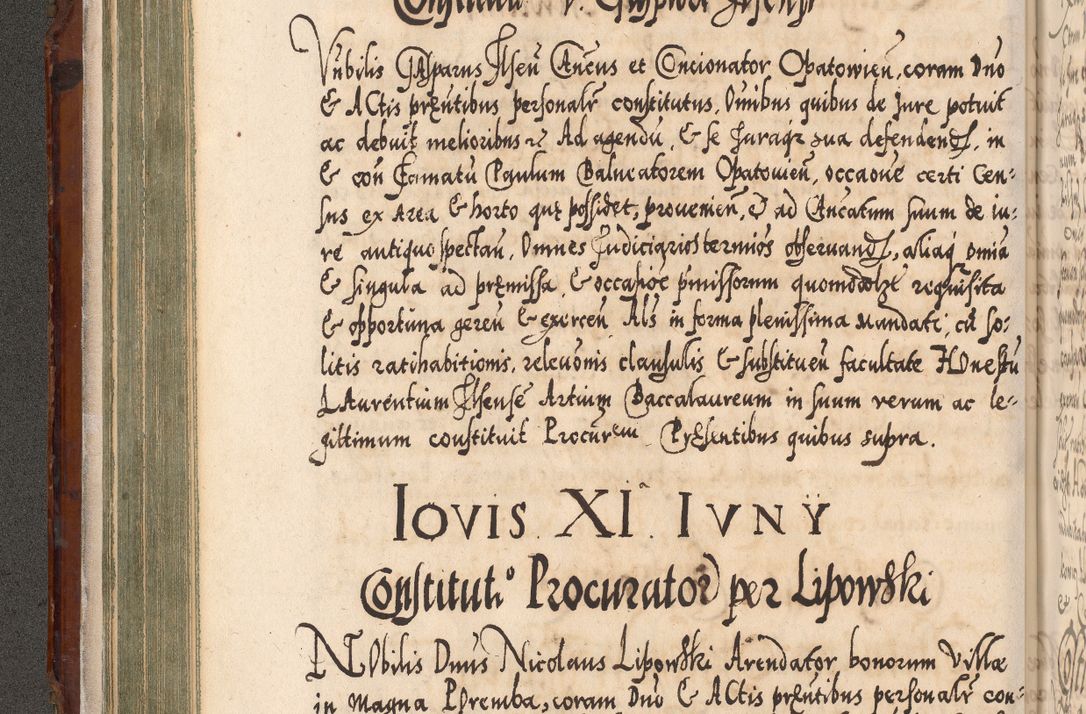 Vnbilis GAsparus Ilsen̄ Cancus et Concionator Opatowien̄, coram Dno
& ACtis pręn̄tibus personalr̄ constitutus, Omibus quibus de Jure potuit
ac debuit melioribus Ad agendū, & se Juraqz sua defendend, in
& con̄ Famatū Paulum Balneatorem Opatowien̄, occaōne certi Cen-
sus ex Area & horto quę possidet, provenien̄, ad Cancatum suum de iu-
re antiquo spectan̄, Omnes Judiciarios termīos observand, aliaq omīa
& singula ad pręmissa & occasiōe pmissorum quomodolt requisita
& opportuna geren̄ & exercen̄ Als in forma plenissima Mandati, cū so-
litis ratihabitionis, relevōnis clausulis & substituen̄ facultate HOnestū
LAurentium Ilsensē Artium Baccalaureum in suum verum ac le-
gittimum constituit Procurem. Pręsentibus quibus supra.
IOVIS XIa IVNY
Constitutio Procurator per Lipowski
NObilis Dnus Nicolaus Lipowski Arendator bonorum Villæ
in Magna POremba, coram Dno & ACtis pręn̄tibus personalr̄ con-